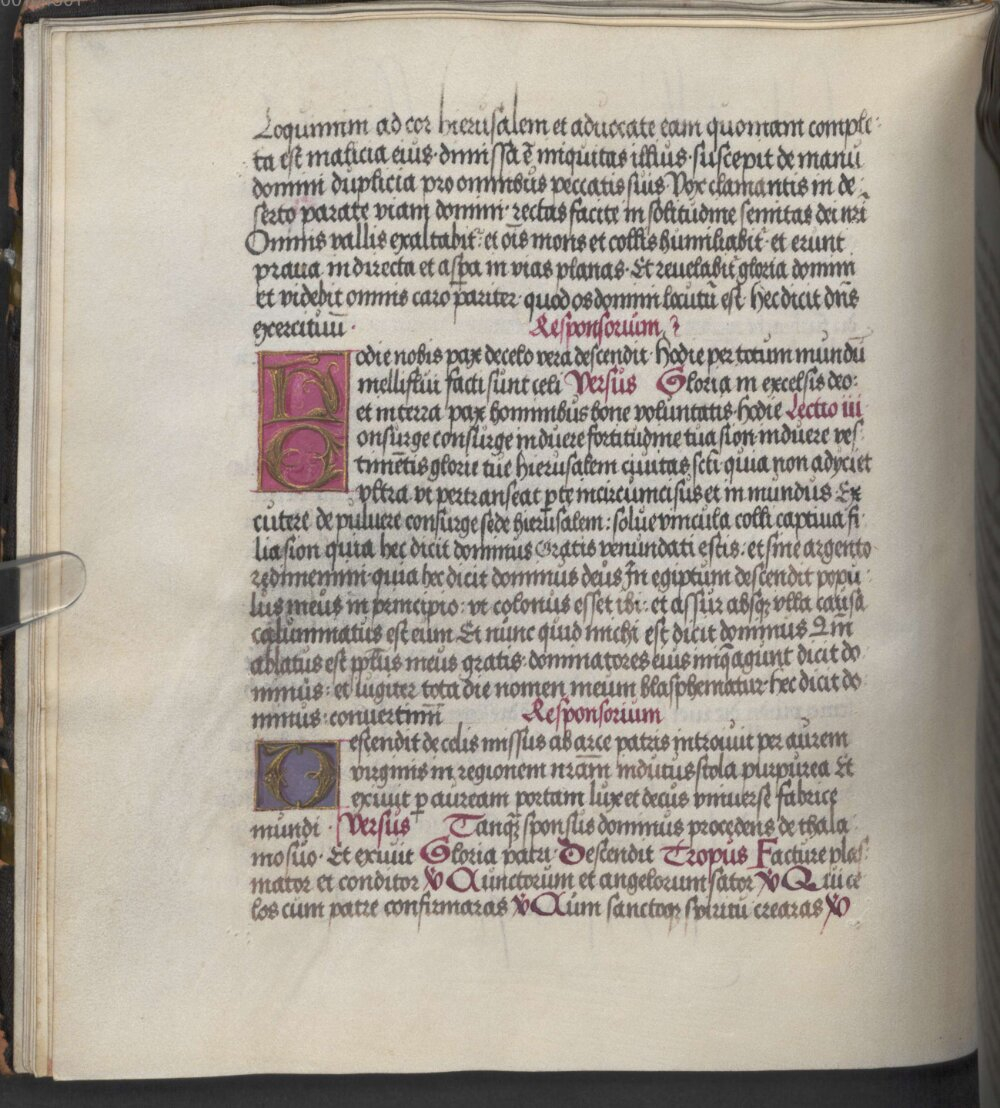 Loquimini ad cor hierusalem et aduocate eam quoniam comple
ta est malicia eius · dimissa ē iniquitas illius · suscepit de manu
domini duplicia pro omnibus peccatis suis · Vox clamantis in de
serto parate viam domini · rectas facite in solitudine semitas dei nr̄i
Omnis vallis exaltabit᷑ · et oīs mons et collis humiliabit᷑ · et erunt
praua in directa et asp̄a in vias planas · Et reuelabit᷑ gloria domini
et videbit omnis caro pariter quod os domini locutū est · hec dicit dn̄s
exercituū · Responsorium
Hodie nobis pax de celo vera descendit · hodie per totum mundū
melliflui facti sunt celi Versus Gloria in excelsis deo ·
et in terra pax hominibus bone voluntatis · hodie Lectio iii
Consurge consurge induere fortitudine tua sion induere ves
timētis glorie tue hierusalem ciuitas sc̄ti quia non adyciet
vltra vt pertranseat p̱ te incircumcisus et in mundus Ex
cutere de puluere consurge sede hierusalem : solue vincula colli captiua fi
lia sion quia hec dicit dominus Gratis venundati estis · et sine argento
redimemini · quia hec dicit dominus deus In egiptum descendit popu
lus meus in principio : vt colonus esset ibi : et assur absqꝫ vlla causa
calumniatus est eum Et nunc quid michi est dicit dominus Qm̄
ablatus est pp̄lus meus gratis · dominatores eius iniq̄ agunt dicit do
minus : et iugiter tota die nomen meum blasphematur · hec dicit do
minus : conuertimī Responsorium
Descendit de celis missus ab arce patris introiuit per aurem
virginis in regionem nr̄am indutus stola purpurea Et
exiuit p̱ auream portam lux et decus vniuerse fabrice
mundi · Versus Tanqꝫ sponsus dominus procedens de thala
mo suo · Et exiuit Gloria patri · Descendit Tropus Facture plas
mator et conditor ℣ Cunctorum et angelorum sator ℣ Qui ce
los cum patre confirmaras ℣ Cum sanctoqꝫ spiritu crearas ℣